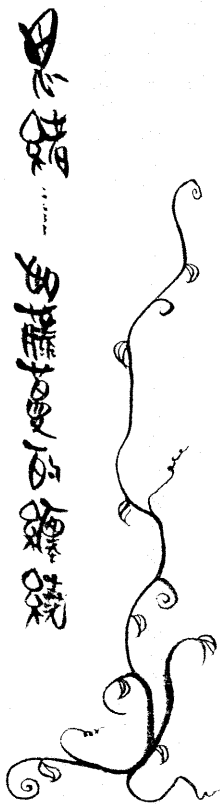 思緒……如藤蔓的纏繞